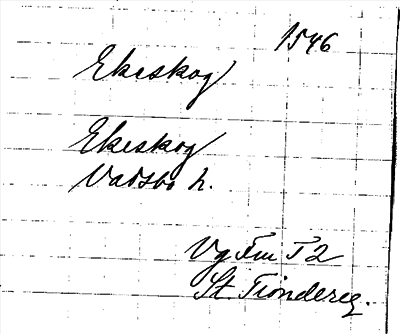 1546
Ekeskog
Ekeskog
Vadsbo h.
Vg Fm T 2
St. Tiondereg.